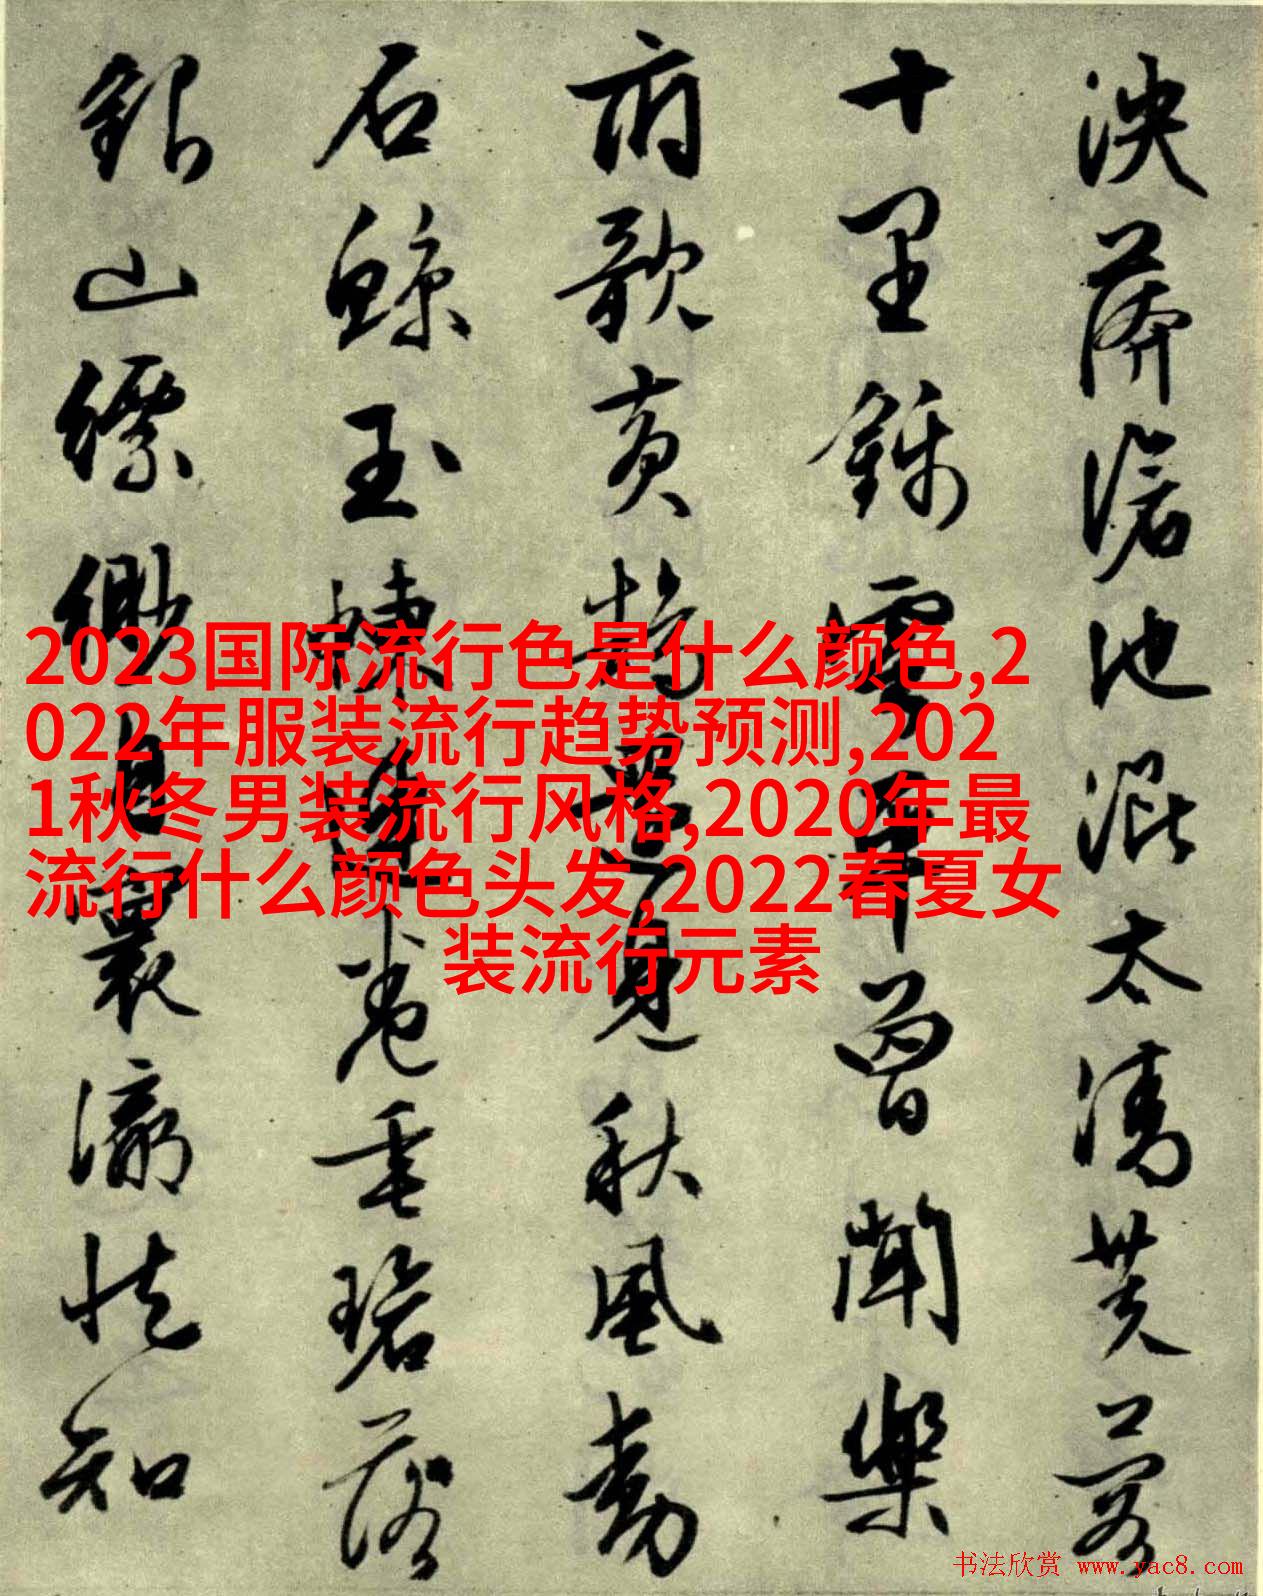 泱莽滄池混太清芙蓉
十里錦雲平曾聞樂
府歌黃鵠還見秋風動
石鯨玉蝀連卷垂碧落
銀山縹緲自寰瀛從知
2023国际流行色是什么颜色,2
022年服装流行趋势预测,202
1秋冬男装流行风格,2020年最
流行什么颜色头发,2022春夏女
装流行元素
书法欣赏 www.yac8.com